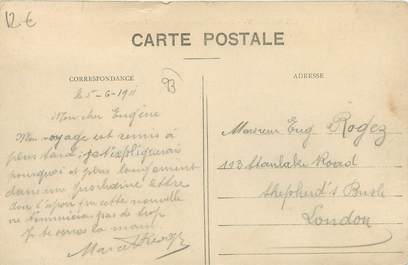 12 €
CARTE POSTALE
CORRESPONDANCE
ADRESSE
93
le 5-6-1911
Mon cher Eugène
Mon voyage est remis à
plus tard; je t'expliquerais
pourquoi et plus longuement
dans une prochaine lettre
que cette nouvelle
ne t'ennuiera pas de trop
Je te serres la main
Monsieur Eug Rogez
113 Road
Shepherd's Bush
London